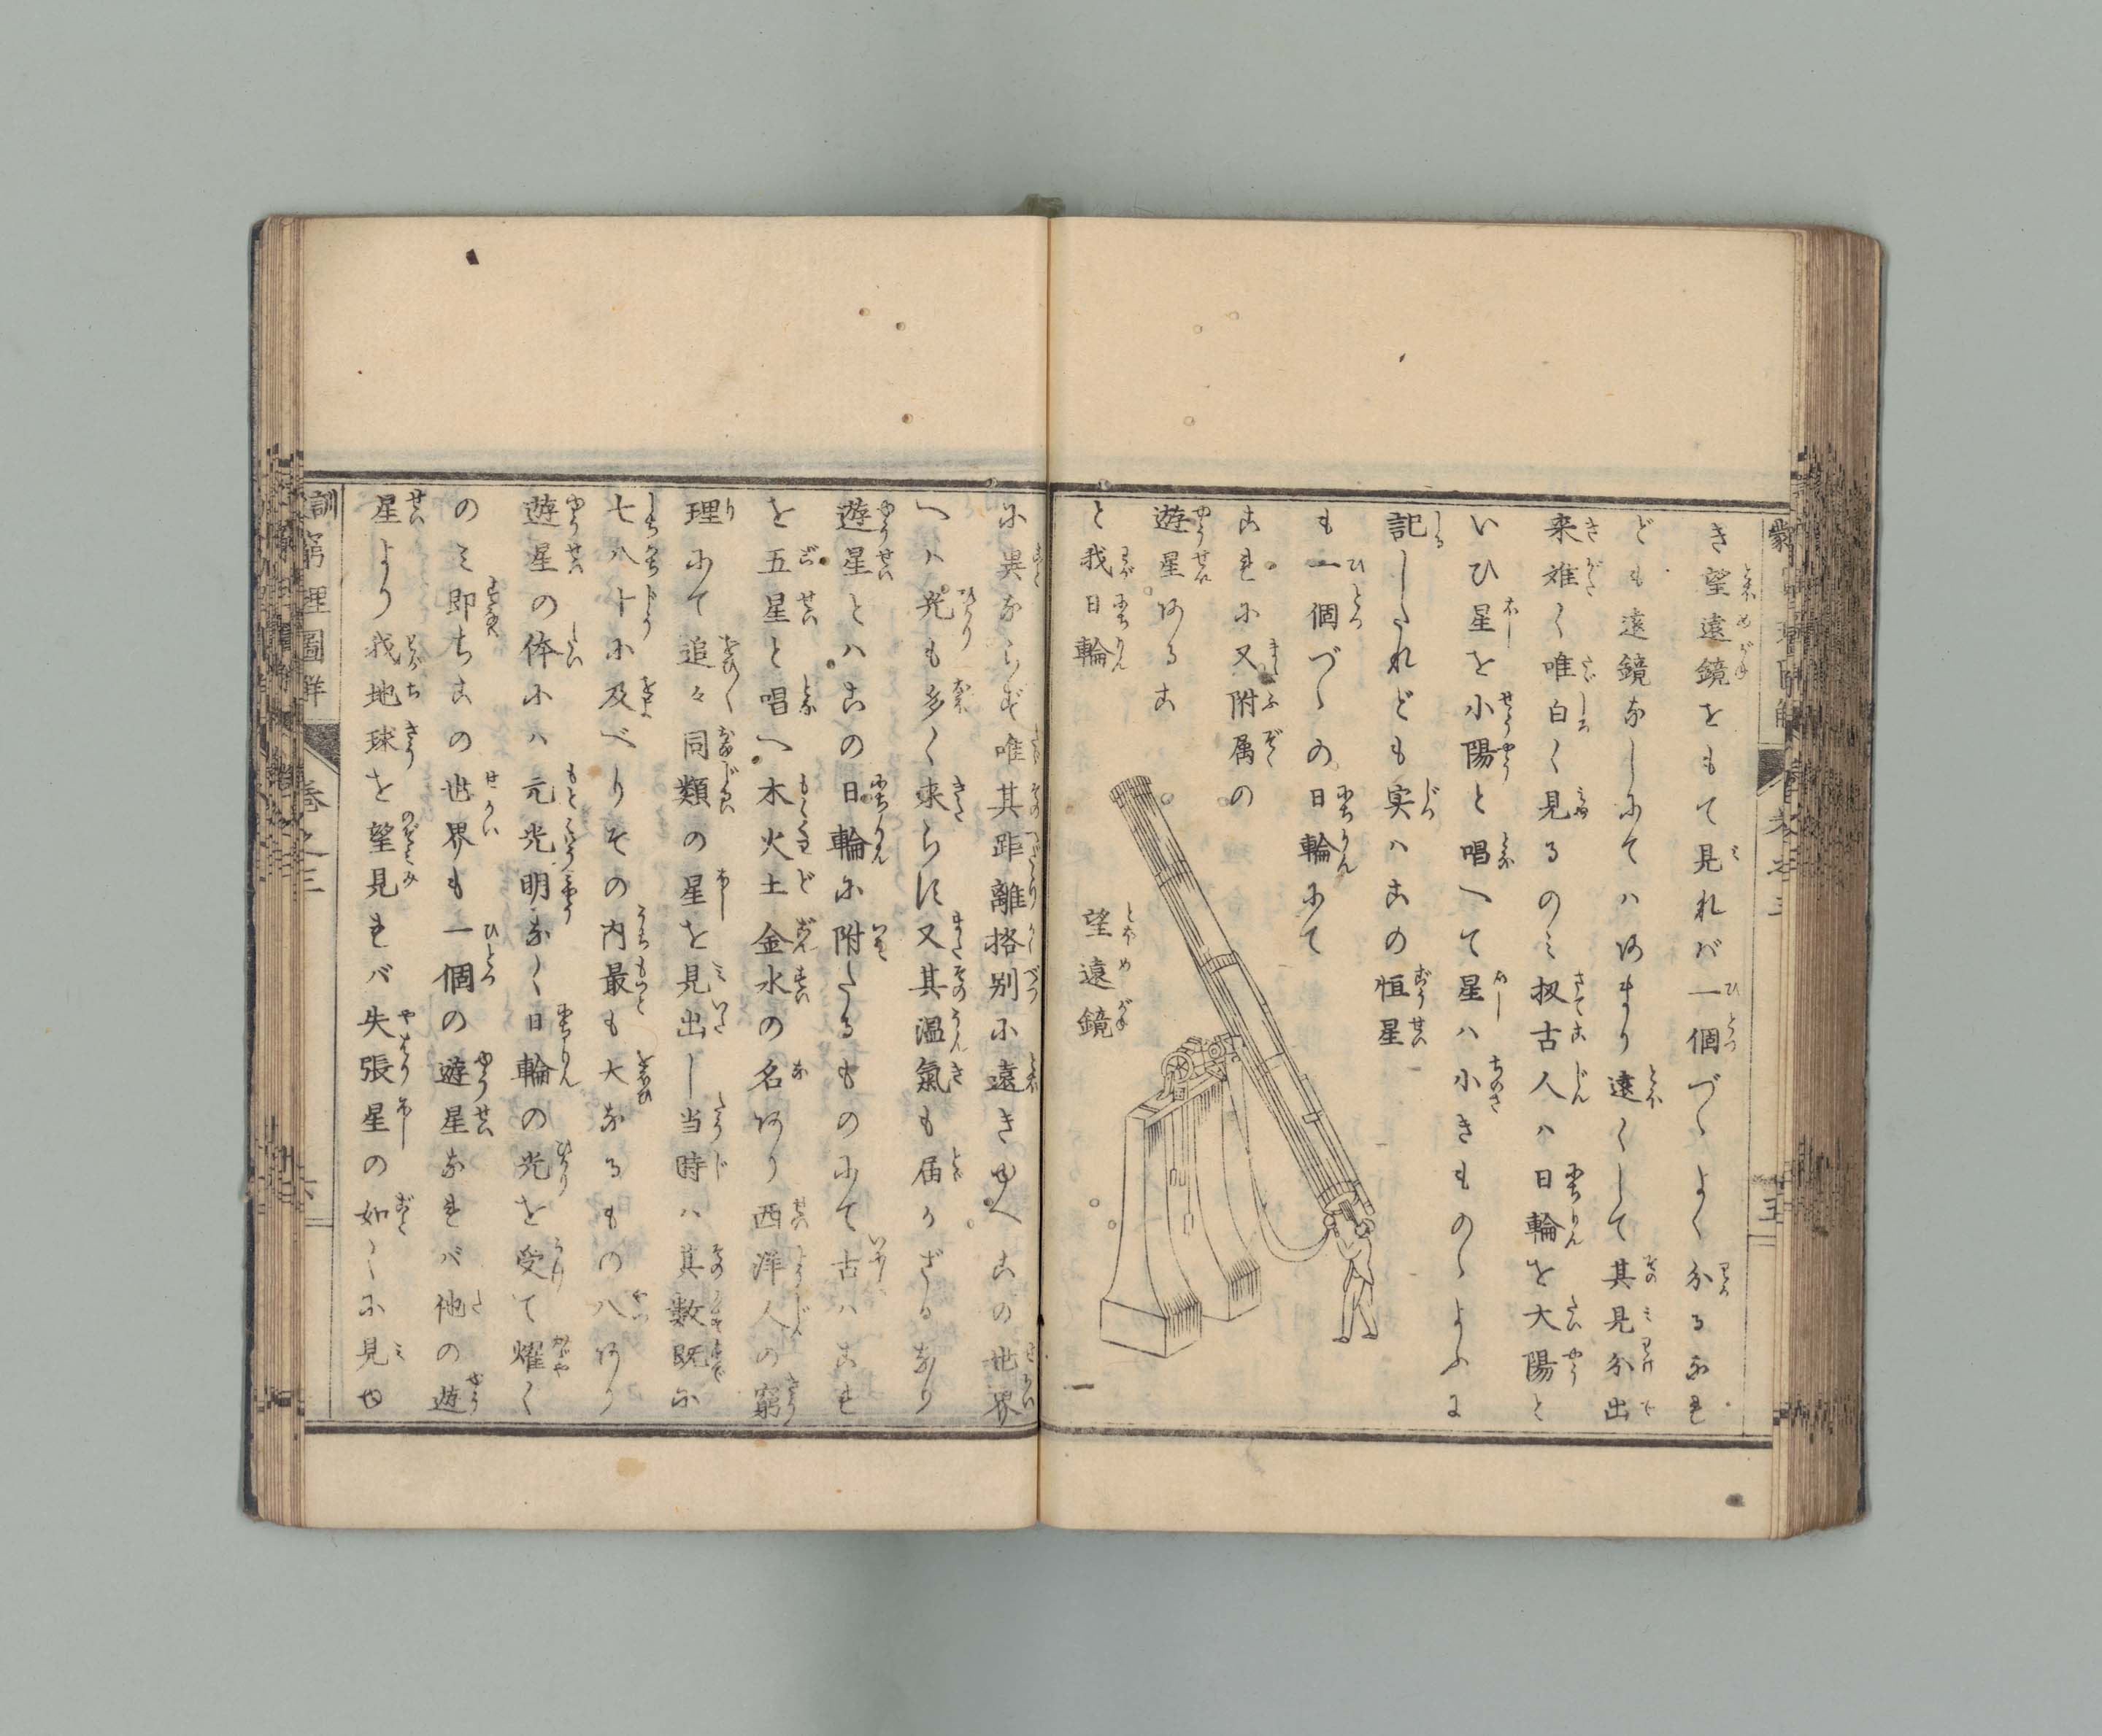 き望遠鏡をもて見れバ一個づゝよく分るなれ
ども遠鏡なしにてハあまり遠くして其見分出
来難く唯白く見るのミ扨古人ハ日輪を大陽と
いひ星を小陽と唱へて星ハ小きものゝよふに
記したれども実ハこの恒星
も一個づゝの日輪にて
これに又附属の
遊星あるこ
と我日輪
望遠鏡
に異ならず唯其距離挌別に遠きゆへこの世界
へハ光も多く来らず又其温氣も届かざるなり
遊星とハこの日輪に附たるものにて古ハこれ
を五星と唱へ木火土金水の名あり西洋人の窮
理にて追々同類の星を見出し当時ハ其数既に
七八十に及べりその内最も大なるもの八あり
遊星の体にハ元光明なく日輪の光を受て耀く
のミ即ちこの世界も一個の遊星なれバ他の遊
星より我地球を望見れバ矢張星の如くに見ゆ
訓窮理圖解 巻之三